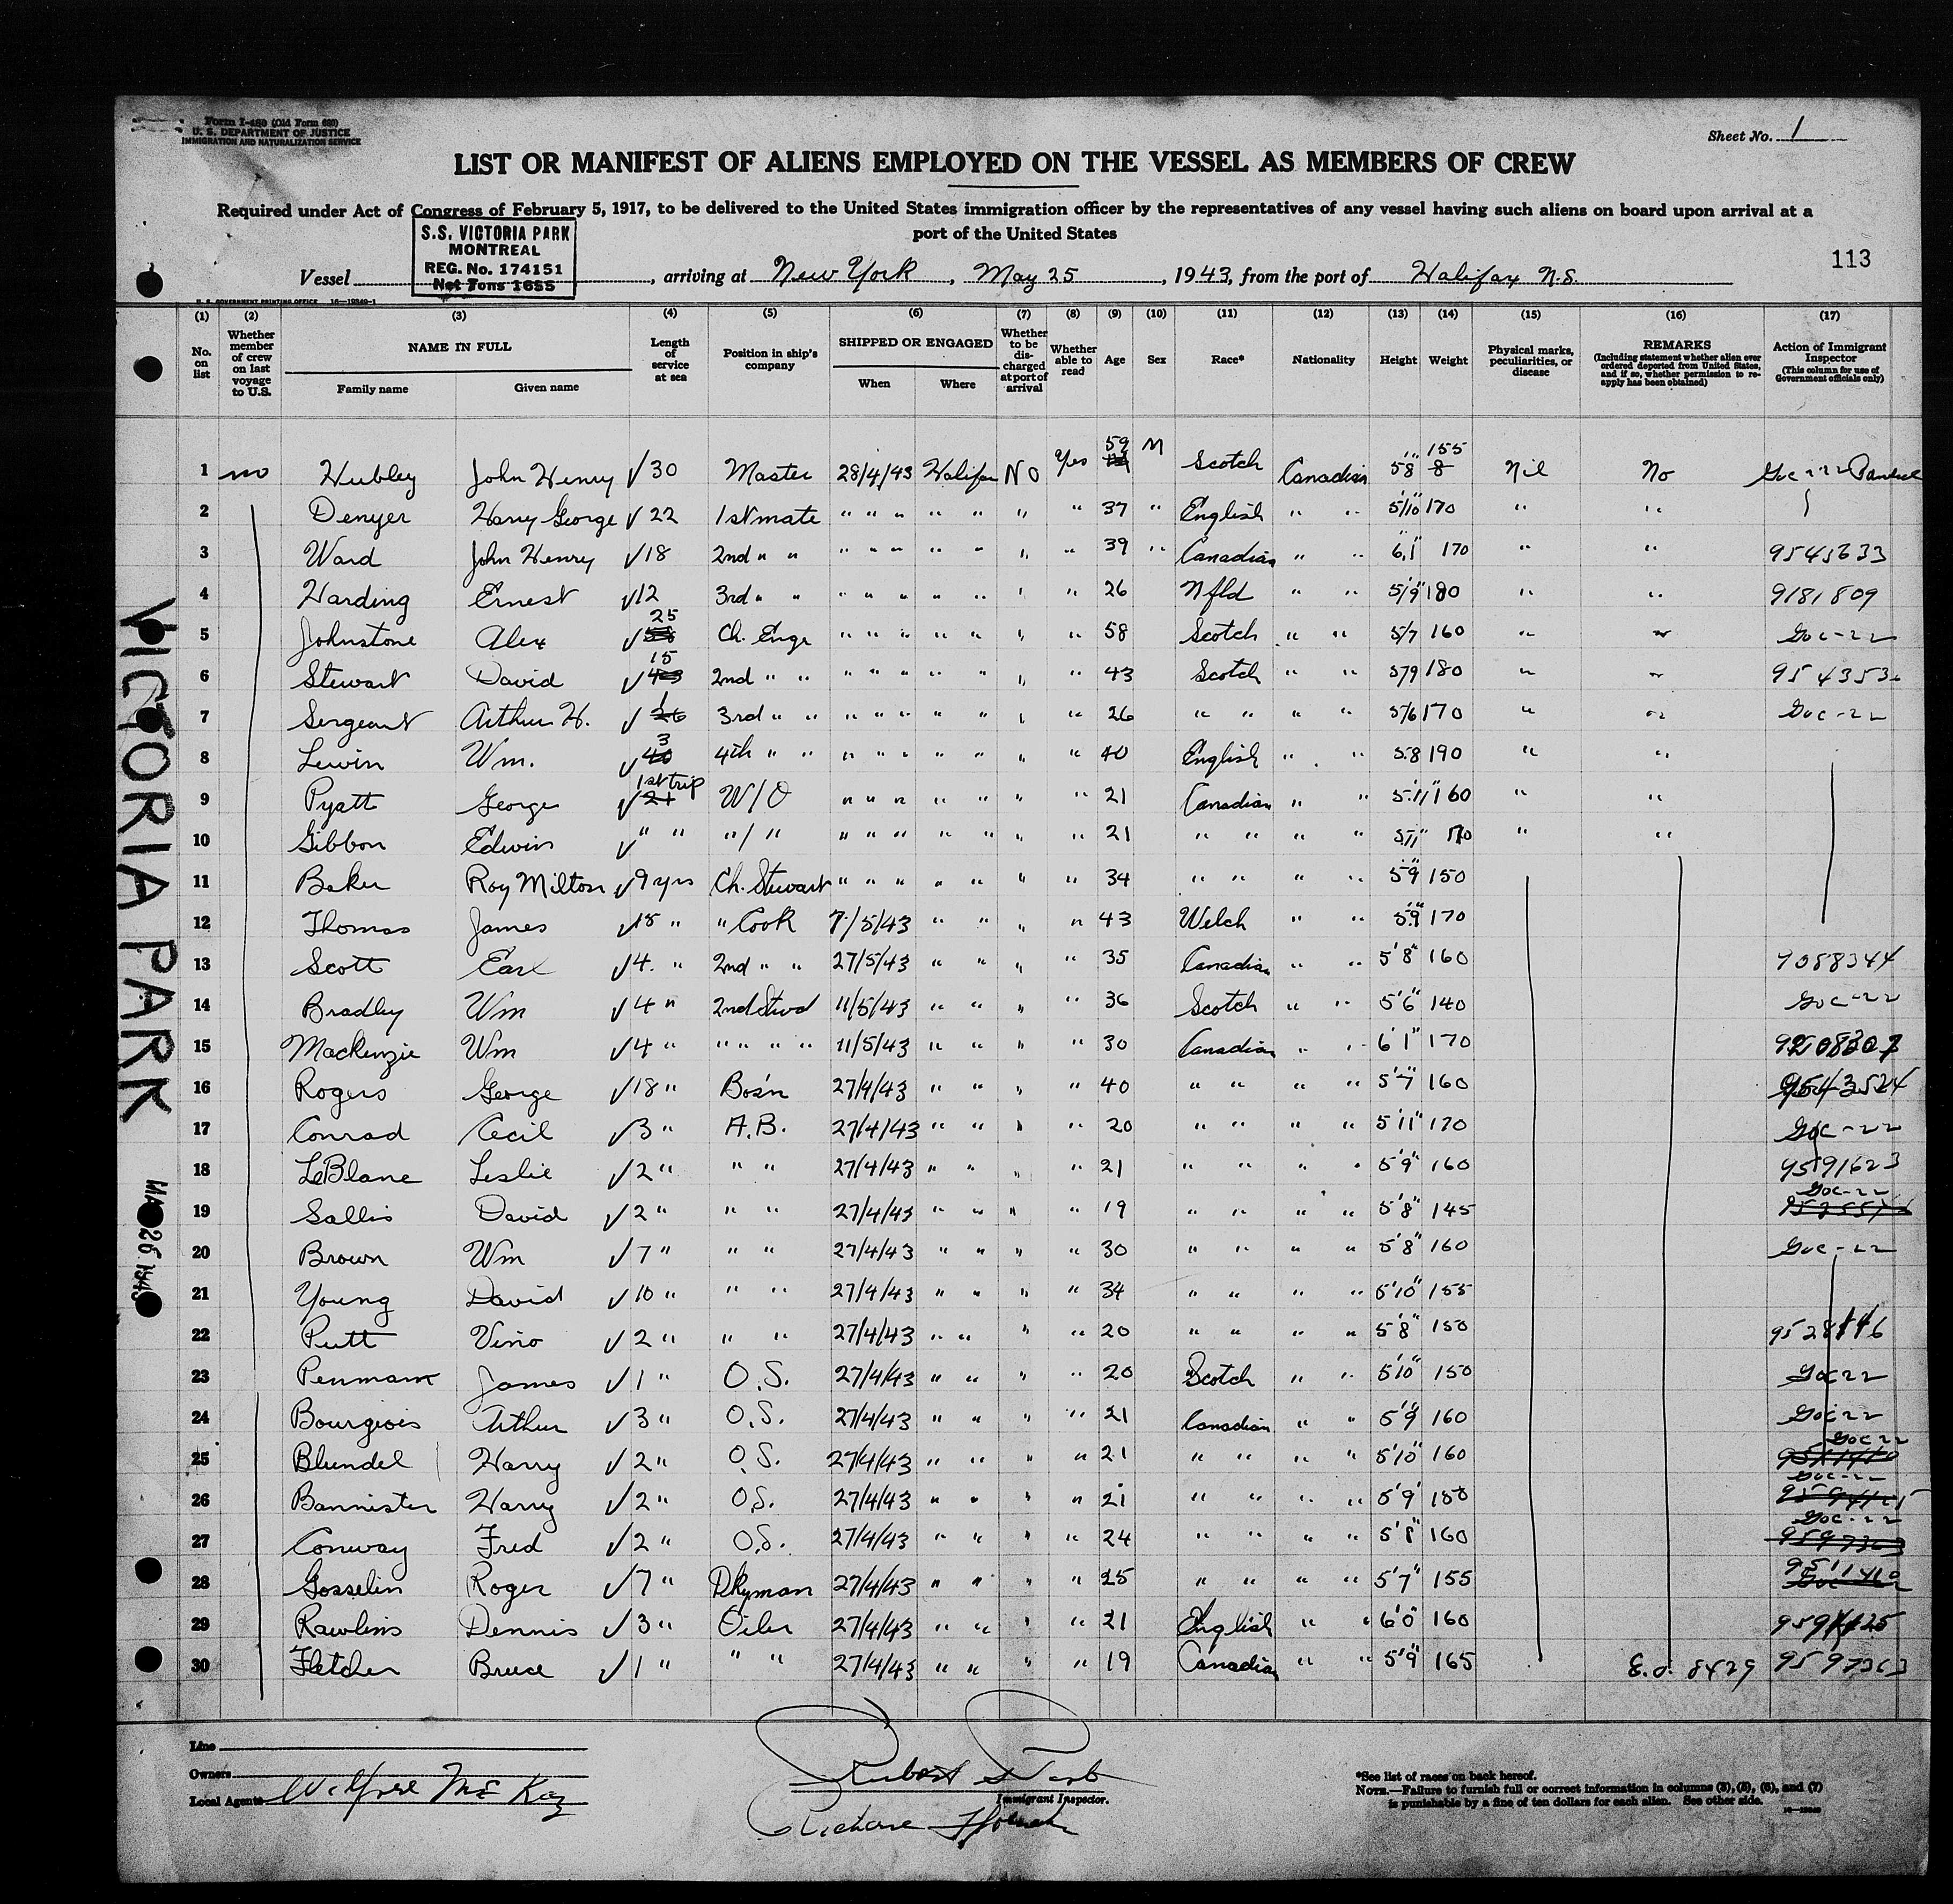 Form I-480 (Old Form 680)
U. S. DEPARTMENT OF JUSTICE
IMMIGRATION AND NATURALIZATION SERVICE
Sheet No. 1
LIST OR MANIFEST OF ALIENS EMPLOYED ON THE VESSEL AS MEMBERS OF CREW
Required under Act of Congress of February 5, 1917, to be delivered to the United States immigration officer by the representatives of any vessel having such aliens on board upon arrival at a
port of the United States
S.S. VICTORIA PARK
MONTREAL
REG. No. 174151
Net Tons 1655
113
Vessel , arriving at New York , May 25 , 1943, from the port of Halifax N.S.
U. S. GOVERNMENT PRINTING OFFICE 16—19349-1
(1) (2) (3) (4) (5) (6) (7) (8) (9) (10) (11) (12) (13) (14) (15) (16) (17)
No. on list
Whether member of crew on last voyage to U.S.
NAME IN FULL
Family name Given name
Length of service at sea
Position in ship's company
SHIPPED OR ENGAGED
When Where
Whether to be discharged at port of arrival
Whether able to read
Age
Sex
Race*
Nationality
Height
Weight
Physical marks, peculiarities, or disease
REMARKS
(Including statement whether alien ever ordered deported from United States, and if so, whether permission to reapply has been obtained)
Action of Immigrant Inspector
(This column for use of Government officials only)
1 no Hubley John Henry √ 30 Master 28/4/43 Halifax No Yes 59 M Scotch Canadian 5'8" 155 Nil No
2 Denyer Harry George √ 22 1st mate " " " " " " " 37 " English " " 5/10" 170 " "
3 Ward John Henry √ 18 2nd " " " " " " " " " 39 " Canadian " " 6,1" 170 " " 9543633
4 Harding Ernest √ 12 3rd " " " " " " " " " 26 Nfld " " 5/9" 180 " " 9181809
5 Johnstone Alex √ 25 Ch. Engr " " " " " " " 58 Scotch " " 5/7 160 " " Goc-22
6 Stewart David √ 15 2nd " " " " " " " " " 43 Scotch " " 5/9 180 " "
7 Sergeant Arthur H. √ 1 3rd " " " " " " " " " 26 " " " " 5/6 170 " " Goc-22
8 Lewin Wm. √ 3 4th " " " " " " " " " 40 English " " 5.8 190 " "
9 Pyatt George √ 1st trip W/O " " " " " " " 21 Canadian " " 5.11" 160 " "
10 Gibbon Edwin √ " " "/" " " " " " " " 21 " " " " 170 " "
11 Baker Roy Milton √ 9 yrs Ch. Stewart " " " " " " " 34 " " " " 5'9" 150
12 Thomas James √ 18 " " Cook 7/5/43 " " " " 43 Welch " " 5'9" 170
13 Scott Earl √ 4. " 2nd " " 27/5/43 " " " " 35 Canadian " " 5'8" 160 9088344
14 Bradley Wm √ 4 " 2nd Stwd 11/5/43 " " " " 36 Scotch " " 5'6" 140 Goc-22
15 Mackenzie Wm √ 4 " " " " " 11/5/43 " " " " 30 Canadian " " 6'1" 170
16 Rogers George √ 18 " Bos'n 27/4/43 " " " " 40 " " " " 5'7" 160
17 Conrad Cecil √ 3 " A.B. 27/4/43 " " " " 20 " " " " 5'11" 170 Goc-22
18 LeBlanc Leslie √ 2 " " " 27/4/43 " " " " 21 " " " " 5'9" 160 9591623
19 Sallis David √ 2 " " " 27/4/43 " " " " 19 " " " " 5'8" 145 Goc-22
20 Brown Wm √ 7 " " " 27/4/43 " " " " 30 " " " " 5'8" 160 Goc-22
21 Young David √ 10 " " " 27/4/43 " " " " 34 " " " " 5'10" 155
22 Putt Vino √ 2 " " " 27/4/43 " " " " 20 " " " " 5'8" 150
23 Penmark James √ 1 " O.S. 27/4/43 " " " " 20 Scotch " " 5'10" 150 Goc22
24 Bourgiois Arthur √ 3 " O.S. 27/4/43 " " " " 21 Canadian " " 5'9" 160 Goc22
25 Blundel Harry √ 2 " O.S. 27/4/43 " " " " 21 " " " " 5'10" 160 Goc22
26 Bannister Harry √ 2 " O.S. 27/4/43 " " " " 21 " " " " 5'9" 150 Goc-22
27 Conway Fred √ 2 " O.S. 27/4/43 " " " " 24 " " " " 5'8" 160 Goc-22
28 Gosselin Roger √ 7 " Dkyman 27/4/43 " " " " 25 " " " " 5'7" 155
29 Rawlins Dennis √ 3 " Oiler 27/4/43 " " " " 21 English " " 6'0" 160
30 Fletcher Bruce √ 1 " " " 27/4/43 " " " " 19 Canadian " " 5'9" 165 8429 9597363
VICTORIA PARK
MAY 26 1943
Line
Owners
Local Agents Wilfred McKay
Immigrant Inspector.
*See list of races on back hereof.
NOTE.—Failure to furnish full or correct information in columns (3), (5), (6), and (7)
is punishable by a fine of ten dollars for each alien. See other side.